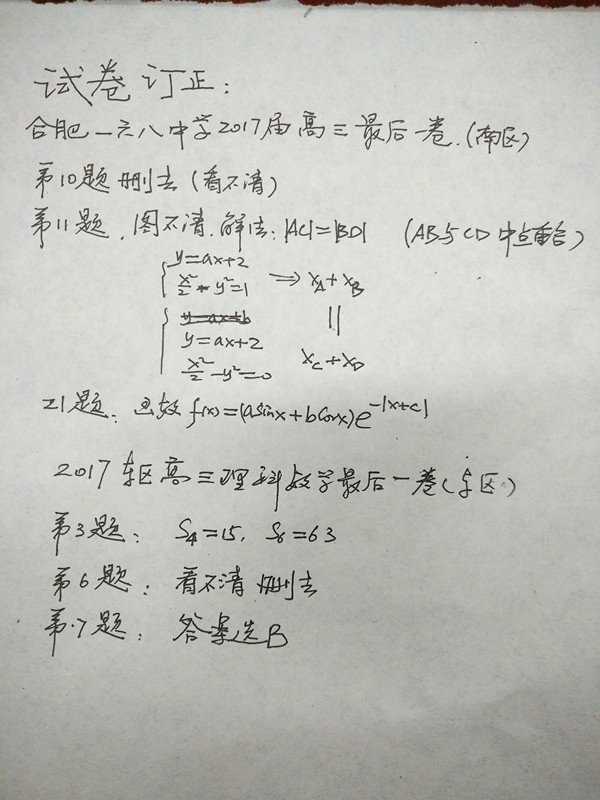 试卷订正:
合肥一六八中学2017届高三最后一卷.(南区)
第10题 删去 (看不清)
第11题. 图不清. 解法: |AC|=|BD| (AB与CD中点重合)
y=ax+2
x²/2 - y²=1 ⇒ x_A+x_B
y=ax+b ||
y=ax+2
x²/2 - y²=0 x_C+x_D
21题: 函数 f(x)=(asinx+bcosx)e^{-|x+c|}
2017东区高三理科数学最后一卷(东区)
第3题: S₄=15, S₆=63
第6题: 看不清 删去
第7题: 答案选B